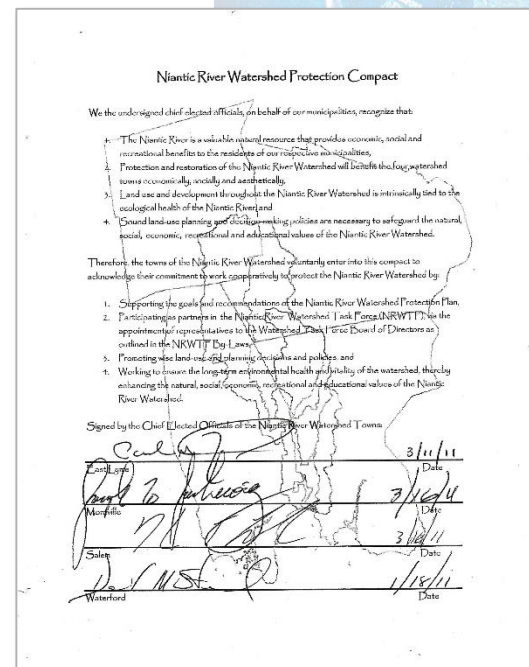 Niantic River Watershed Protection Compact
We the undersigned chief elected officials, on behalf of our municipalities, recognize that:
1. The Niantic River is a valuable natural resource that provides economic, social and
recreational benefits to the residents of our respective municipalities,
2. Protection and restoration of the Niantic River Watershed will benefit the four watershed
towns economically, socially and aesthetically,
3. Land use and development throughout the Niantic River Watershed is intrinsically tied to the
ecological health of the Niantic River, and
4. Sound land-use planning and decision-making policies are necessary to safeguard the natural,
social, economic, recreational and educational values of the Niantic River Watershed.
Therefore, the towns of the Niantic River Watershed voluntarily enter into this compact to
acknowledge their commitment to work cooperatively to protect the Niantic River Watershed by:
1. Supporting the goals and recommendations of the Niantic River Watershed Protection Plan,
2. Participating as partners in the Niantic River Watershed Task Force (NRWTF), via the
appointment of representatives to the Watershed Task Force Board of Directors as
outlined in the NRWTF By-Laws,
3. Promoting wise land-use and planning decisions and policies, and
4. Working to ensure the long-term environmental health and vitality of the watershed, thereby
enhancing the natural, social, economic, recreational and educational values of the Niantic
River Watershed.
Signed by the Chief Elected Officials of the Niantic River Watershed Towns:
3/11/11
East Lyme Date
3/16/11
Montville Date
Salem Date
1/18/11
Waterford Date